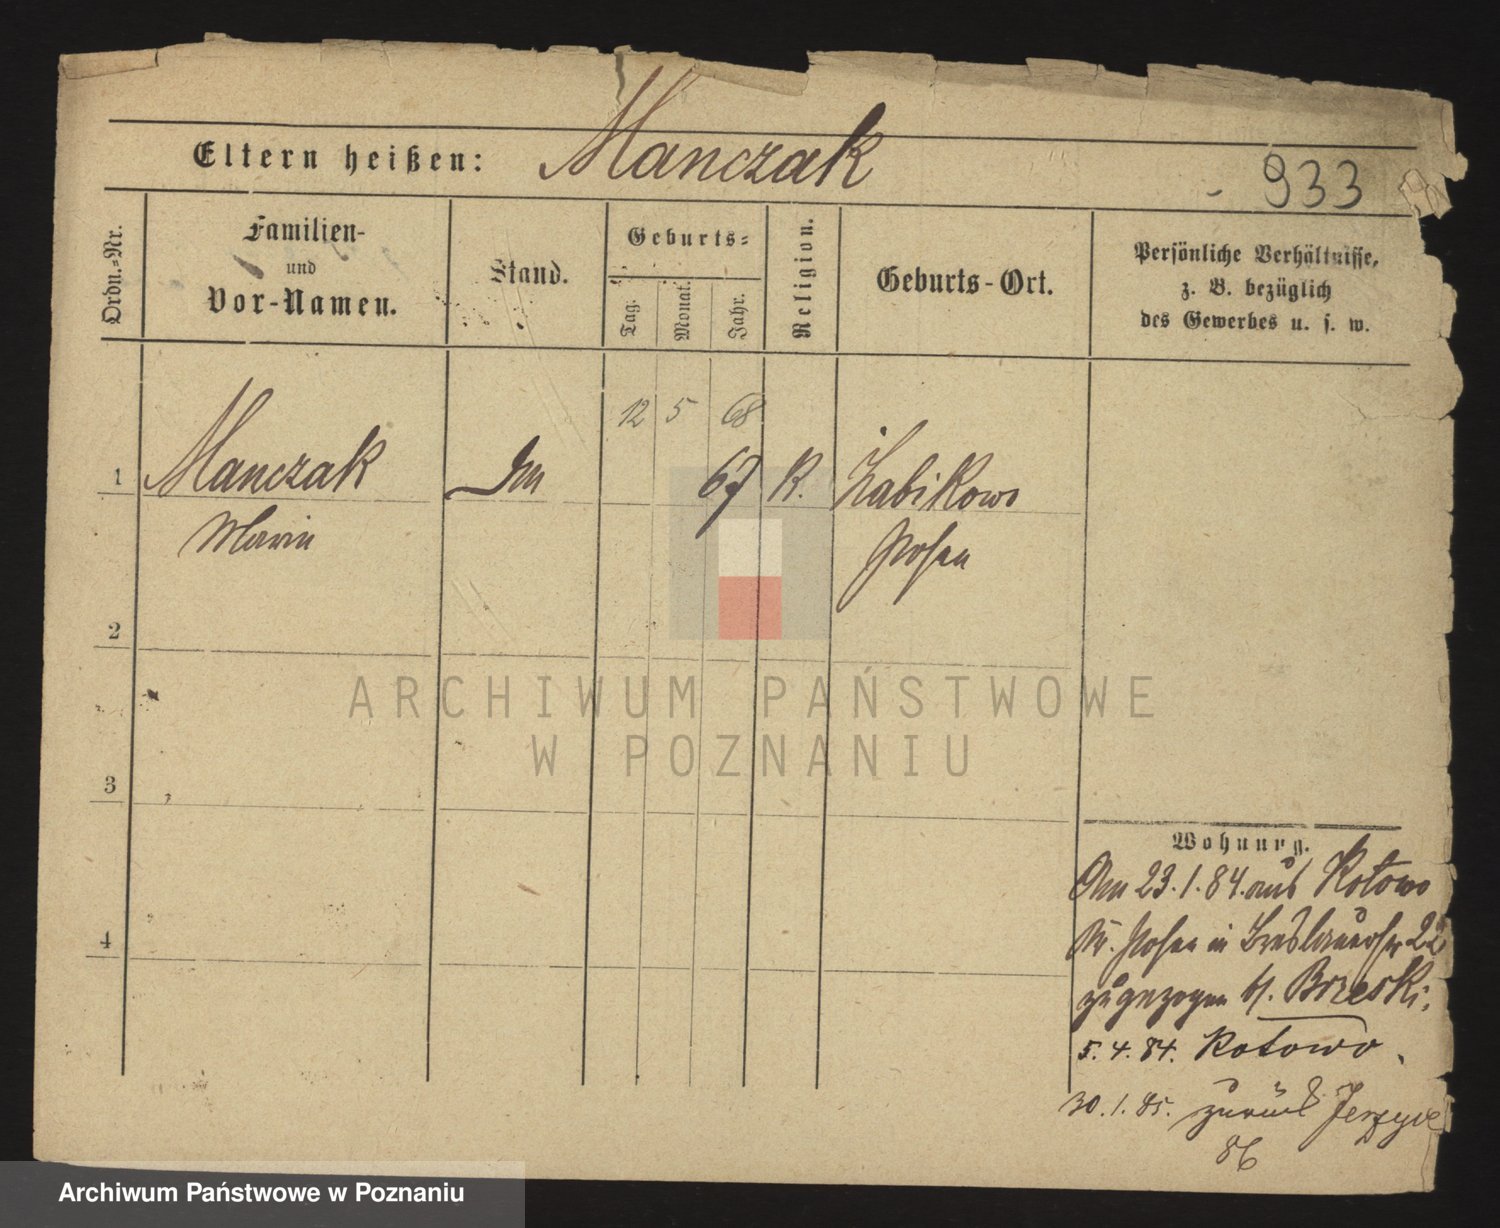 Eltern heißen: Manczak
933
Ordn.-Nr.
Familien-
und
Vor-Namen.
Stand.
Geburts-
Tag.
Monat.
Jahr.
Religion.
Geburts-Ort.
Persönliche Verhältnisse,
z. B. bezüglich
des Gewerbes u. s. w.
12 5 68
1 Manczak 67 K. Żabikowo
Marie Posen
2
3
4
ARCHIWUM PAŃSTWOWE
W POZNANIU
Wohnung.
Am 23.1.84. aus Kotowo
Kr. Posen in Breslauerstr 22
zugezogen b/. Brzeski.
5.4.84. Kotowo.
30.1.85. zurück Jerzyce
86
Archiwum Państwowe w Poznaniu